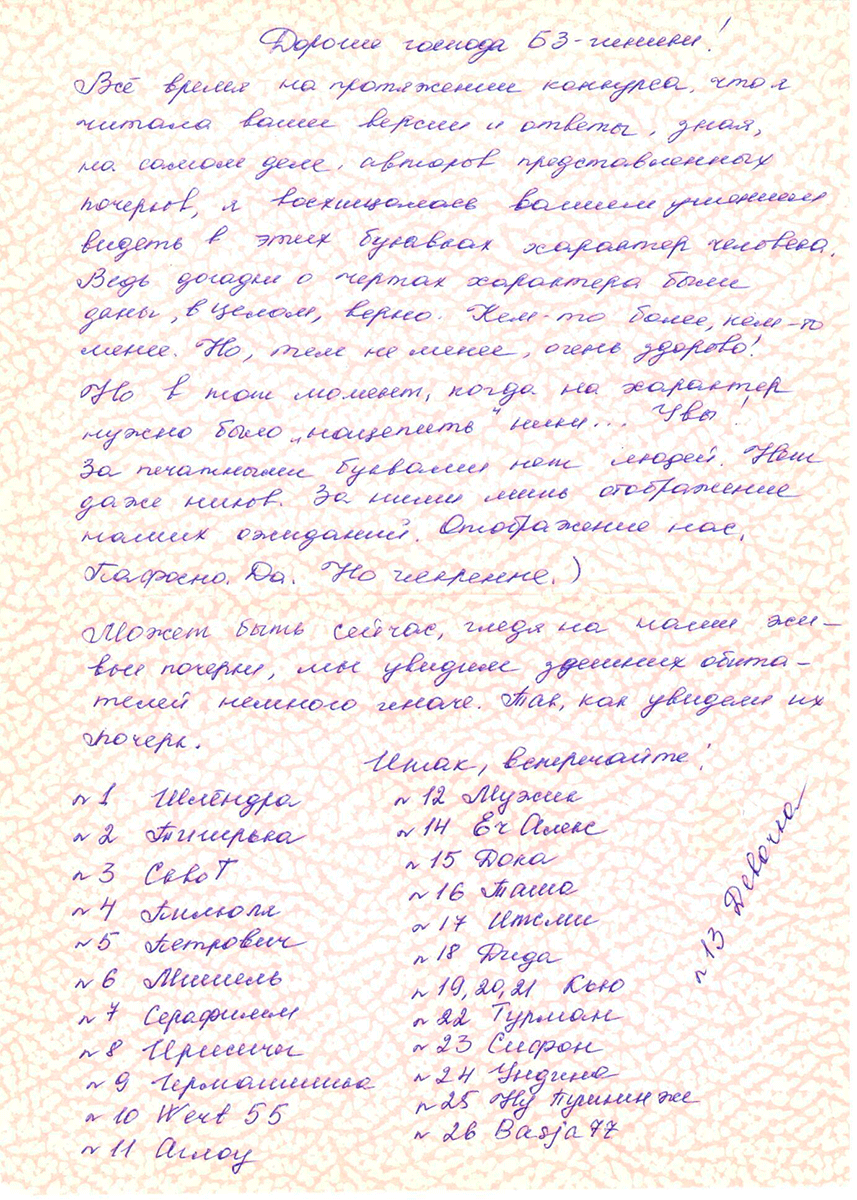 Дорогие господа БЗ-шники!
Всё время на протяжении конкурса, что я
читала ваши версии и ответы, зная,
на самом деле, авторов представленных
почерков, я восхищалась вашим умением
видеть в этих буковках характер человека.
Ведь догадки о чертах характера были
даны, в целом, верно. Кем-то более, кем-то
менее. Но, тем не менее, очень здорово!
Но в тот момент, когда на характер
нужно было „нацепить" ники... Увы!
За печатными буквами нет людей. Нет
даже ников. За ними лишь отображение
наших ожиданий. Отображение нас.
Пафосно. Да. Но искренне.)
Может быть сейчас, глядя на наши жи-
вые почерки, мы увидим здешних обита-
телей немного иначе. Так, как увидели их
почерк.
Итак, встречайте!
№1 Шлёндра
№2 Тишрька
№3 СквоТ
№4 Пилюля
№5 Петрович
№6 Мишель
№7 Серафилл
№8 Ирисичы
№9 Гермашишка
№10 Wert 55
№11 Аглоу
№12 Мужик
№14 Еч Алекс
№15 Дока
№16 Таша
№17 Итсми
№18 Дида
№19, 20, 21 Кью
№22 Турман
№23 Сифон
№24 Ундина
№25 Ну Пушинже
№26 Basja77
№13 Девочка